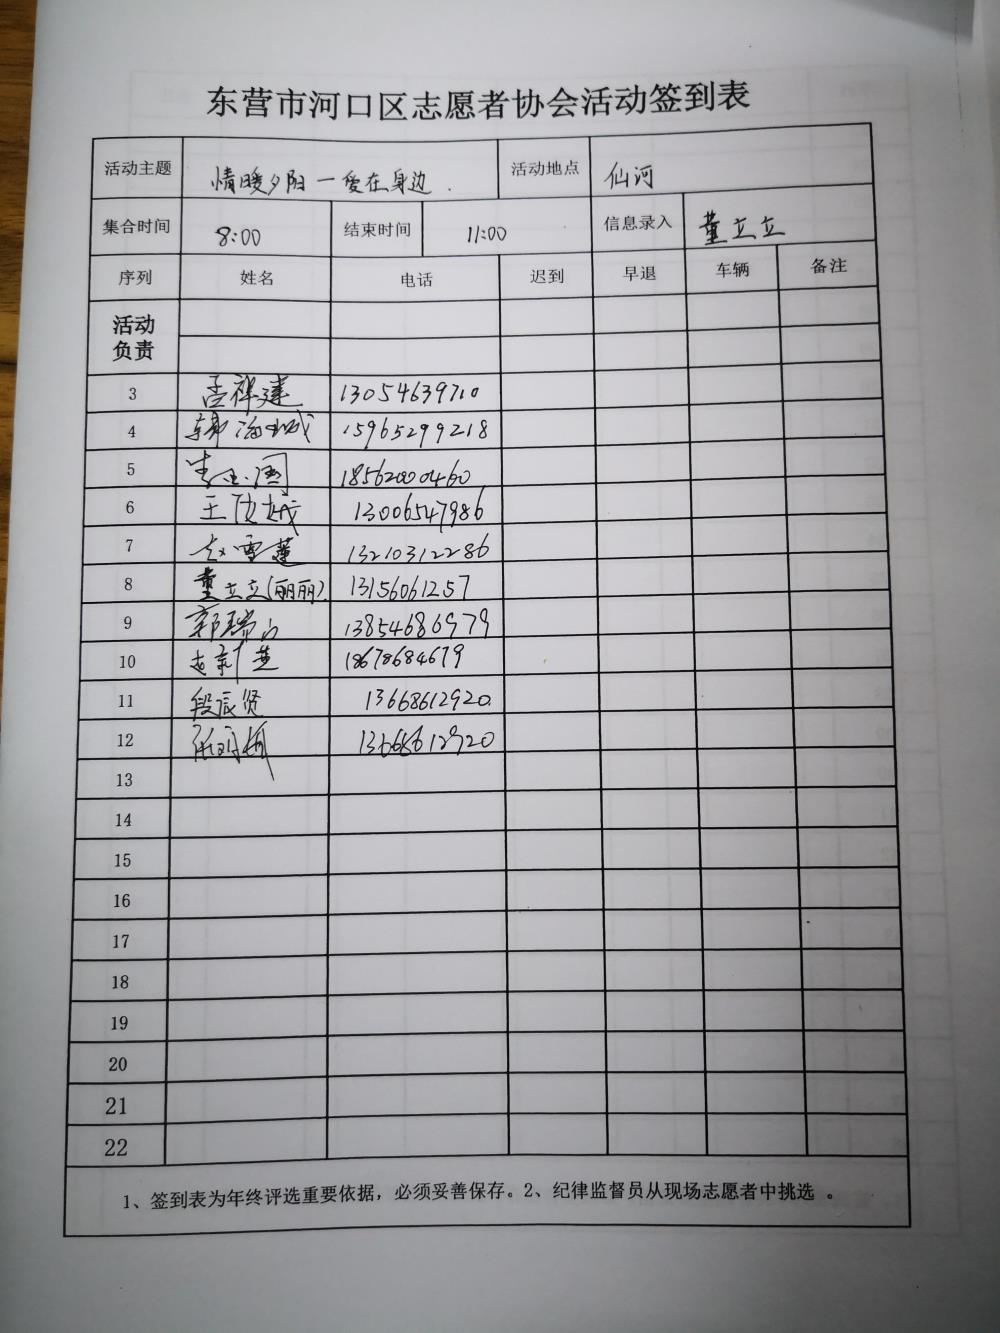 东营市河口区志愿者协会活动签到表
活动主题 情暖夕阳一爱在身边. 活动地点 仙河
集合时间 8:00 结束时间 11:00 信息录入 董立立
序列 姓名 电话 迟到 早退 车辆 备注
活动
负责
3 孟祥建 13054639710
4 韩海城 15965299218
5 18562000460
6 王 13006547986
7 赵雪莲 13210312286
8 董立立(丽丽) 13156061257
9 郭瑞 13854686979
10 18678684679
11 段辰贤 13668612920
12 13668612920
13
14
15
16
17
18
19
20
21
22
1、签到表为年终评选重要依据，必须妥善保存。2、纪律监督员从现场志愿者中挑选 。